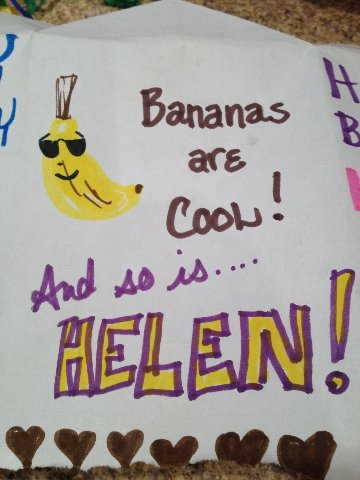 Bananas
are
Cool!
And so is....
HELEN!